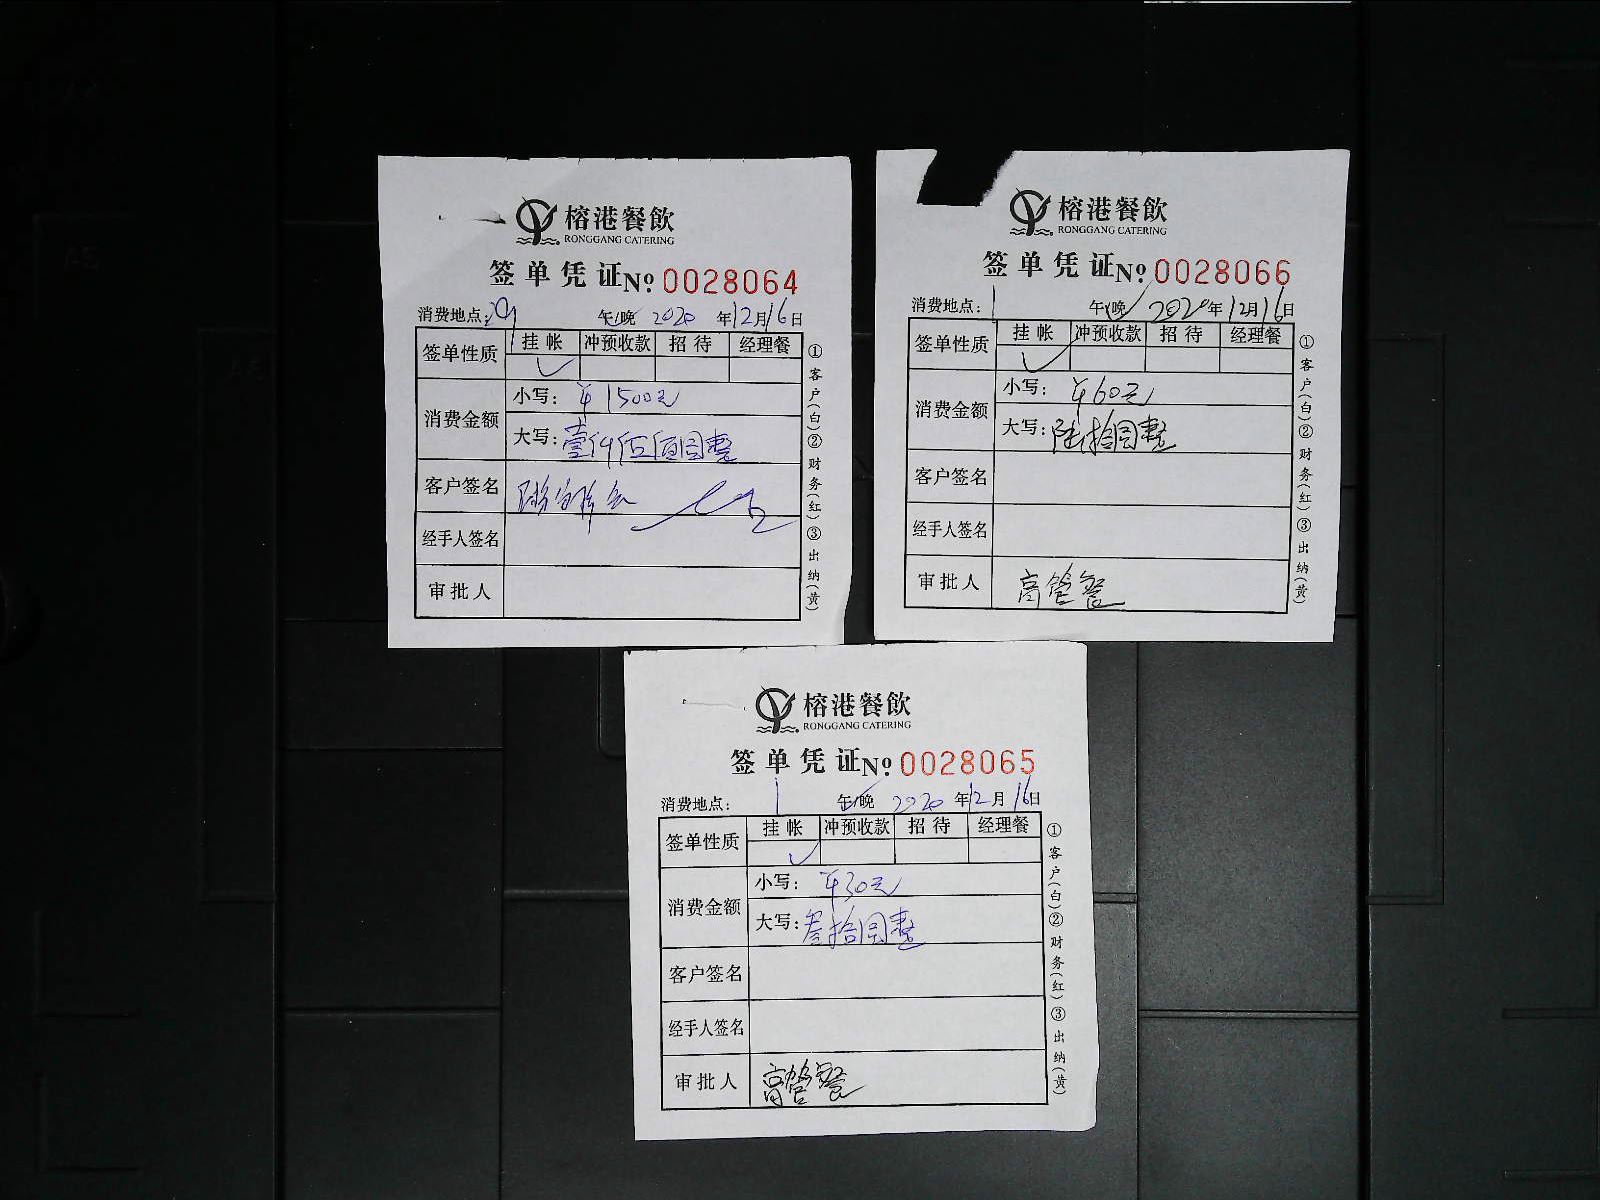 榕港餐飲
RONGGANG CATERING
签单凭证 No. 0028064
消费地点: 午/晚 2020年12月16日
签单性质 挂帐 冲预收款 招待 经理餐
✓
消费金额
小写: ¥1500元
大写: 壹仟伍佰圆整
客户签名
经手人签名
审批人
①客户(白)②财务(红)③出纳(黄)
榕港餐飲
RONGGANG CATERING
签单凭证 No. 0028066
消费地点: 午/晚 2020年12月16日
签单性质 挂帐 冲预收款 招待 经理餐
✓
消费金额
小写: ¥60元
大写: 陆拾圆整
客户签名
经手人签名
审批人 高管餐
①客户(白)②财务(红)③出纳(黄)
榕港餐飲
RONGGANG CATERING
签单凭证 No. 0028065
消费地点: 午/晚 2020年12月16日
签单性质 挂帐 冲预收款 招待 经理餐
✓
消费金额
小写: ¥30元
大写: 叁拾圆整
客户签名
经手人签名
审批人 高管餐
①客户(白)②财务(红)③出纳(黄)